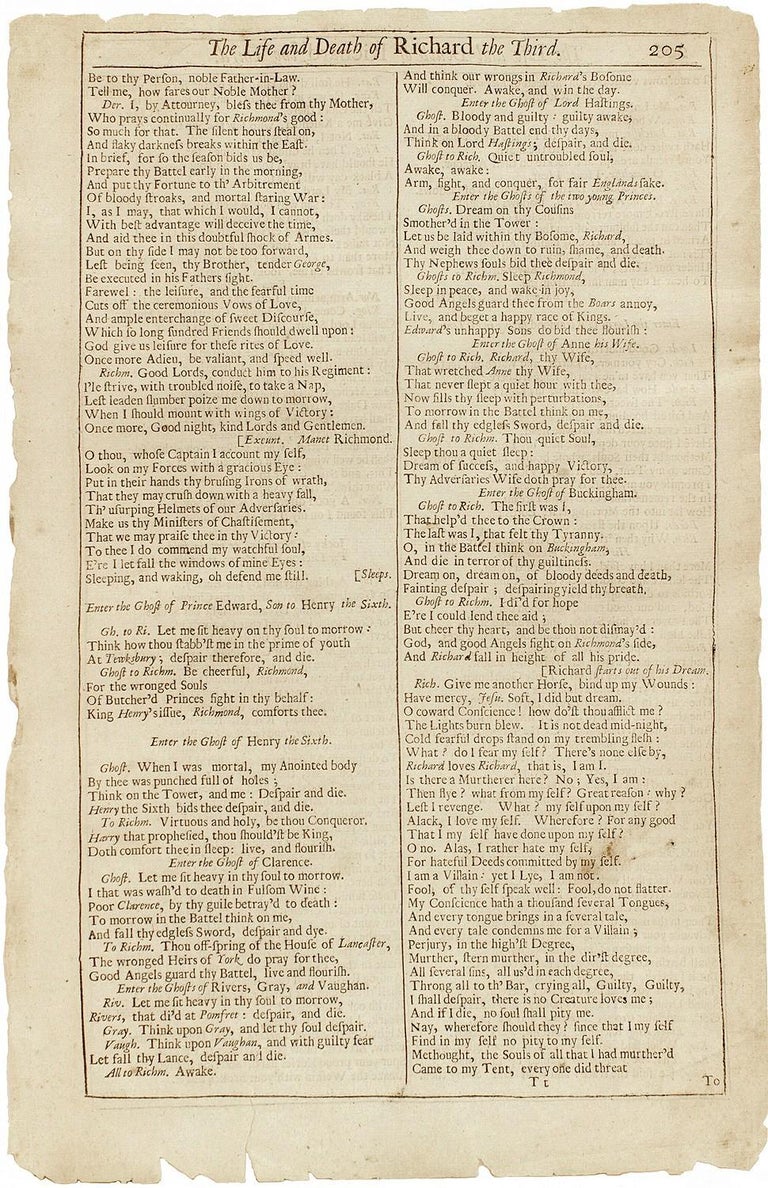 The Life and Death of Richard the Third.
205
Be to thy Perſon, noble Father-in-Law.
Tell me, how fares our Noble Mother?
Der. I, by Attourney, bleſs thee from thy Mother,
Who prays continually for Richmond's good:
So much for that. The ſilent hours ſteal on,
And flaky darkneſs breaks within the Eaſt.
In brief, for ſo the ſeaſon bids us be,
Prepare thy Battel early in the morning,
And put thy Fortune to th' Arbitrement
Of bloody ſtroaks, and mortal ſtaring War:
I, as I may, that which I would, I cannot,
With beſt advantage will deceive the time,
And aid thee in this doubtful ſhock of Armes.
But on thy ſide I may not be too forward,
Leſt being ſeen, thy Brother, tender George,
Be executed in his Fathers ſight.
Farewel: the leiſure, and the fearful time
Cuts off the ceremonious Vows of Love,
And ample enterchange of ſweet Diſcourſe,
Which ſo long ſundred Friends ſhould dwell upon:
God give us leiſure for theſe rites of Love.
Once more Adieu, be valiant, and ſpeed well.
Richm. Good Lords, conduct him to his Regiment:
I'le ſtrive, with troubled noiſe, to take a Nap,
Leſt leaden ſlumber poize me down to morrow,
When I ſhould mount with wings of Victory:
Once more, Good night, kind Lords and Gentlemen.
[Exeunt. Manet Richmond.
O thou, whoſe Captain I account my ſelf,
Look on my Forces with a gracious Eye:
Put in their hands thy bruſing Irons of wrath,
That they may cruſh down with a heavy fall,
Th' uſurping Helmets of our Adverſaries.
Make us thy Miniſters of Chaſtiſement,
That we may praiſe thee in thy Victory:
To thee I do commend my watchful ſoul,
E're I let fall the windows of mine Eyes:
Sleeping, and waking, oh defend me ſtill. [Sleeps.
Enter the Ghoſt of Prince Edward, Son to Henry the Sixth.
Gh. to Ri. Let me ſit heavy on thy ſoul to morrow:
Think how thou ſtabb'ſt me in the prime of youth
At Tewksbury; deſpair therefore, and die.
Ghoſt to Richm. Be cheerful, Richmond,
For the wronged Souls
Of Butcher'd Princes fight in thy behalf:
King Henry's iſſue, Richmond, comforts thee.
Enter the Ghoſt of Henry the Sixth.
Ghoſt. When I was mortal, my Anointed body
By thee was punched full of holes;
Think on the Tower, and me: Deſpair and die.
Henry the Sixth bids thee deſpair, and die.
To Richm. Virtuous and holy, be thou Conqueror,
Harry that propheſied, thou ſhould'ſt be King,
Doth comfort thee in ſleep: live, and flouriſh.
Enter the Ghoſt of Clarence.
Ghoſt. Let me ſit heavy in thy ſoul to morrow.
I that was waſh'd to death in Fulſom Wine:
Poor Clarence, by thy guile betray'd to death:
To morrow in the Battel think on me,
And fall thy edgleſs Sword, deſpair and dye.
To Richm. Thou off-ſpring of the Houſe of Lancaſter,
The wronged Heirs of York do pray for thee,
Good Angels guard thy Battel, live and flouriſh.
Enter the Ghoſts of Rivers, Gray, and Vaughan.
Riv. Let me ſit heavy in thy ſoul to morrow,
Rivers, that di'd at Pomfret: deſpair, and die.
Gray. Think upon Gray, and let thy ſoul deſpair.
Vaugh. Think upon Vaughan, and with guilty fear
Let fall thy Lance, deſpair and die.
All to Richm. Awake.
And think our wrongs in Richard's Boſome
Will conquer. Awake, and win the day.
Enter the Ghoſt of Lord Haſtings.
Ghoſt. Bloody and guilty: guilty awake,
And in a bloody Battel end thy days,
Think on Lord Haſtings; deſpair, and die.
Ghoſt to Rich. Quiet untroubled ſoul,
Awake, awake:
Arm, fight, and conquer, for fair Englands ſake.
Enter the Ghoſts of the two young Princes.
Ghoſts. Dream on thy Couſins
Smother'd in the Tower:
Let us be laid within thy Boſome, Richard,
And weigh thee down to ruin, ſhame, and death.
Thy Nephews ſouls bid thee deſpair and die.
Ghoſts to Richm. Sleep Richmond,
Sleep in peace, and wake in joy,
Good Angels guard thee from the Boars annoy,
Live, and beget a happy race of Kings.
Edward's unhappy Sons do bid thee flouriſh:
Enter the Ghoſt of Anne his Wife.
Ghoſt to Rich. Richard, thy Wife,
That wretched Anne thy Wife,
That never ſlept a quiet hour with thee,
Now fills thy ſleep with perturbations,
To morrow in the Battel think on me,
And fall thy edgleſs Sword, deſpair and die.
Ghoſt to Richm. Thou quiet Soul,
Sleep thou a quiet ſleep:
Dream of ſucceſs, and happy Victory,
Thy Adverſaries Wife doth pray for thee.
Enter the Ghoſt of Buckingham.
Ghoſt to Rich. The firſt was I,
That help'd thee to the Crown:
The laſt was I, that felt thy Tyranny.
O, in the Battel think on Buckingham,
And die in terror of thy guiltineſs.
Dream on, dream on, of bloody deeds and death,
Fainting deſpair; deſpairing yield thy breath.
Ghoſt to Richm. I di'd for hope
E're I could lend thee aid;
But cheer thy heart, and be thou not diſmay'd:
God, and good Angels fight on Richmond's ſide,
And Richard fall in height of all his pride.
[Richard ſtarts out of his Dream.
Rich. Give me another Horſe, bind up my Wounds:
Have mercy, Jeſu. Soft, I did but dream.
O coward Conſcience! how do'ſt thou afflict me?
The Lights burn blew. It is not dead mid-night,
Cold fearful drops ſtand on my trembling fleſh:
What? do I fear my ſelf? There's none elſe by,
Richard loves Richard, that is, I am I.
Is there a Murtherer here? No; Yes, I am:
Then flye? what from my ſelf? Great reaſon: why?
Leſt I revenge. What? my ſelf upon my ſelf?
Alack, I love my ſelf. Wherefore? For any good
That I my ſelf have done upon my ſelf?
O no. Alas, I rather hate my ſelf,
For hateful Deeds committed by my ſelf.
I am a Villain: yet I Lye, I am not.
Fool, of thy ſelf ſpeak well: Fool, do not flatter.
My Conſcience hath a thouſand ſeveral Tongues,
And every tongue brings in a ſeveral tale,
And every tale condemns me for a Villain;
Perjury, in the high'ſt Degree,
Murther, ſtern murther, in the dir'ſt degree,
All ſeveral ſins, all us'd in each degree,
Throng all to th' Bar, crying all, Guilty, Guilty,
I ſhall deſpair, there is no Creature loves me;
And if I die, no ſoul ſhall pity me.
Nay, wherefore ſhould they? ſince that I my ſelf
Find in my ſelf no pity to my ſelf.
Methought, the Souls of all that I had murther'd
Came to my Tent, every one did threat
T t
To